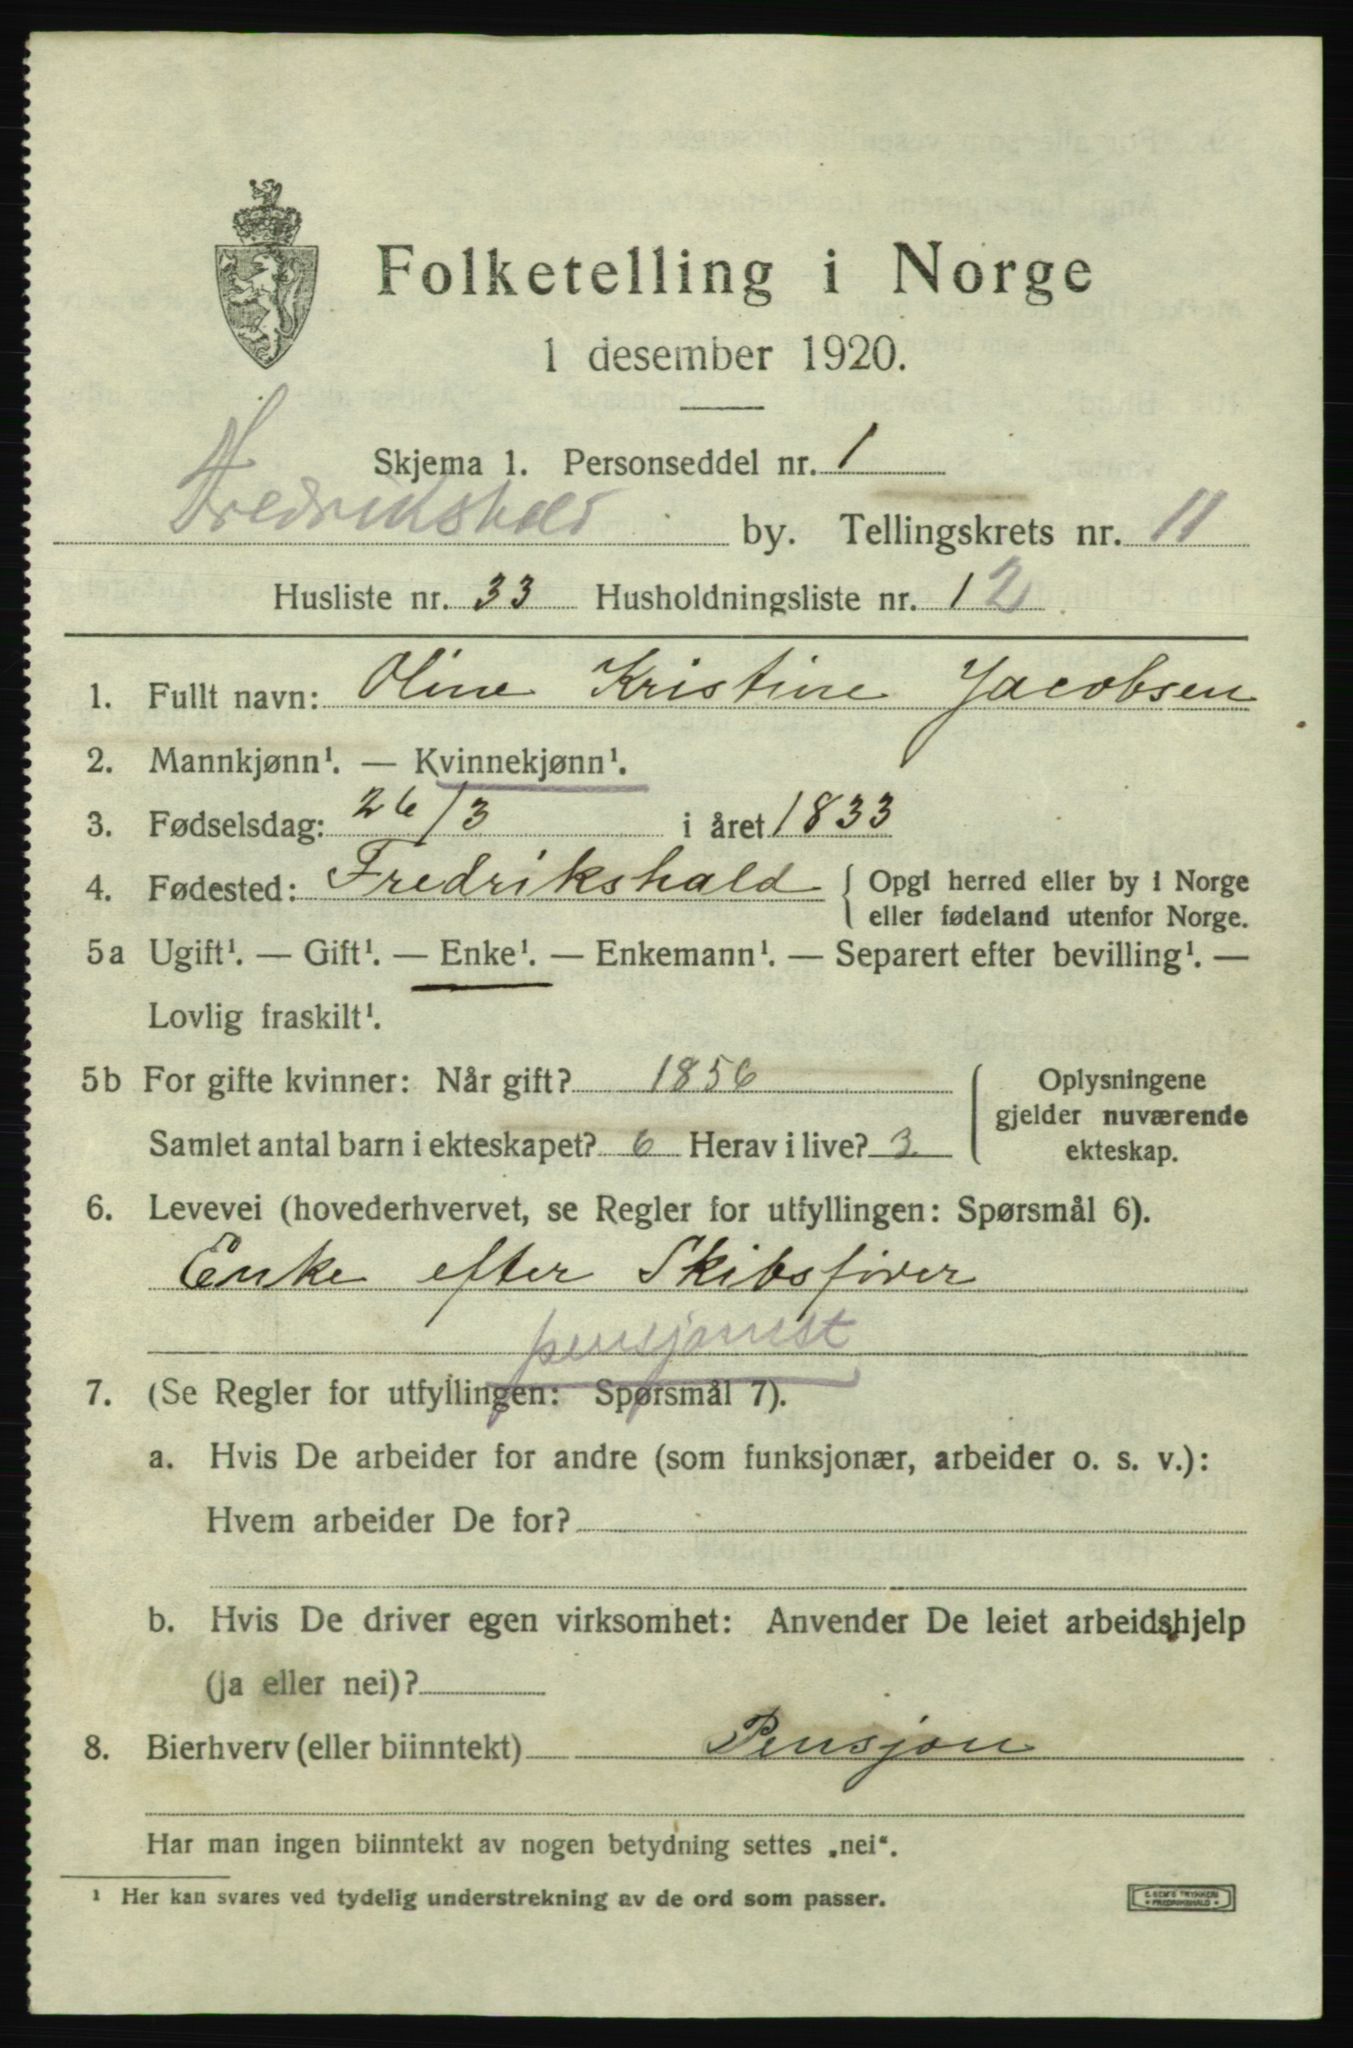 Folketelling i Norge
1 desember 1920.
Skjema 1. Personseddel nr. 1
Fredrikshald by. Tellingskrets nr. 11
Husliste nr. 33 Husholdningsliste nr. 12
1. Fullt navn: Oline Kristine Jacobsen
2. Mannkjønn¹. — Kvinnekjønn¹.
3. Fødselsdag: 26/3 i året 1833
4. Fødested: Fredrikshald { Opgi herred eller by i Norge
eller fødeland utenfor Norge.
5a Ugift¹. — Gift¹. — Enke¹. — Enkemann¹. — Separert efter bevilling¹. —
Lovlig fraskilt¹.
5b For gifte kvinner: Når gift? 1856
Samlet antal barn i ekteskapet? 6 Herav i live? 3
Oplysningene
gjelder nuværende
ekteskap.
6. Levevei (hovederhvervet, se Regler for utfyllingen: Spørsmål 6).
Enke efter Skibsfører
pensjonist
7. (Se Regler for utfyllingen: Spørsmål 7).
a. Hvis De arbeider for andre (som funksjonær, arbeider o. s. v.):
Hvem arbeider De for?
b. Hvis De driver egen virksomhet: Anvender De leiet arbeidshjelp
(ja eller nei)?
8. Bierhverv (eller biinntekt) Pensjon
Har man ingen biinntekt av nogen betydning settes „nei“.
¹ Her kan svares ved tydelig understrekning av de ord som passer.